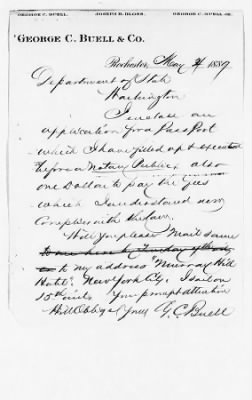 GEORGE C. BUELL. JOSEPH B. BLOSS. GEORGE C. BUELL JR.
GEORGE C. BUELL & CO.
Rochester, May 4 1889
Department of State
Washington
I enclose an
application for a Passport
which I have filled up & executed
before a Notary Public, also
one Dollar to pay the fees
which I understand now
complies with the law.
Will you please mail same
to me here by Tuesday
to my address "Murray Hill
Hotel". New York City. I sail on
15th inst. Your prompt attention
Will Oblige Yours G. C. Buell